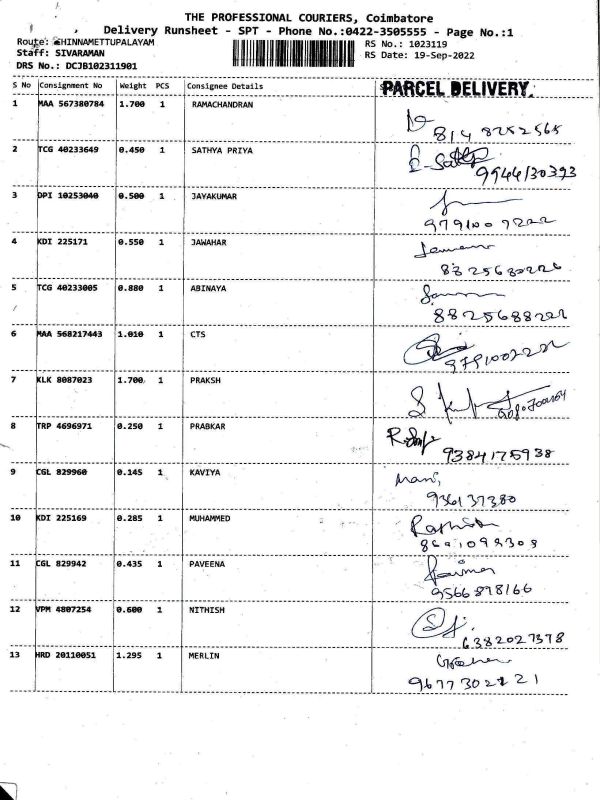 THE PROFESSIONAL COURIERS, Coimbatore
Delivery Runsheet - SPT - Phone No.:0422-3505555 - Page No.:1
Route: CHINNAMETTUPALAYAM
RS No.: 1023119
Staff: SIVARAMAN
RS Date: 19-Sep-2022
DRS No.: DCJB102311901
S No Consignment No Weight PCS Consignee Details PARCEL DELIVERY.
1 MAA 567380784 1.700 1 RAMACHANDRAN
8148252565
2 TCG 40233649 0.450 1 SATHYA PRIYA
9944130393
3 DPI 10253040 0.500 1 JAYAKUMAR
4 KDI 225171 0.550 1 JAWAHAR
8825680226
5 TCG 40233005 0.880 1 ABINAYA
8825688222
6 MAA 568217443 1.010 1 CTS
9791002222
7 KLK 8087023 1.700 1 PRAKSH
8 TRP 4696971 0.250 1 PRABKAR
9384175938
9 CGL 829960 0.145 1 KAVIYA
Mani,
936137380
10 KDI 225169 0.285 1 MUHAMMED
11 CGL 829942 0.435 1 PAVEENA
9566878166
12 VPM 4807254 0.600 1 NITHISH
6382027378
13 HRD 20110051 1.295 1 MERLIN
9677302221